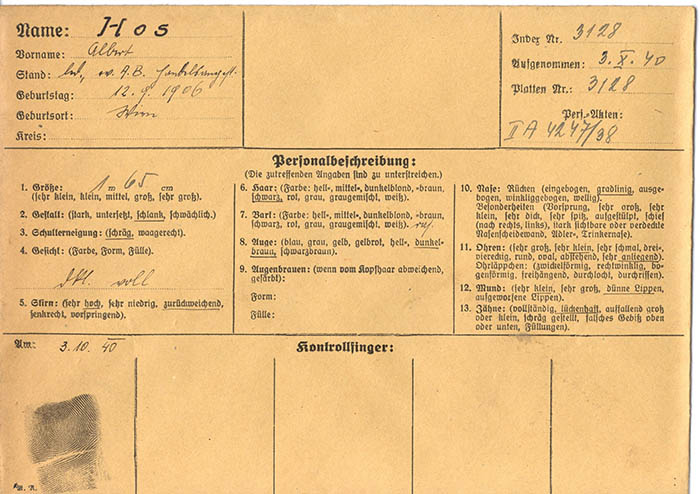 Name: Hos
Vorname: Albert
Stand: led., ev. A.B. Handelsangest.
Geburtstag: 12. 9. 1906
Geburtsort: Wien
Kreis:
Index Nr. 3128
Aufgenommen: 3. X. 40
Platten Nr.: 3128
Pers.-Akten:
II A 4247/38
Personalbeschreibung:
(Die zutreffenden Angaben sind zu unterstreichen.)
1. Größe: 1 m 65 cm
(sehr klein, klein, mittel, groß, sehr groß).
2. Gestalt: (stark, untersetzt, schlank, schwächlich).
3. Schulterneigung: (schräg, waagerecht).
4. Gesicht: (Farbe, Form, Fülle).
voll
5. Stirn: (sehr hoch, sehr niedrig, zurückweichend,
senkrecht, vorspringend).
6. Haar: (Farbe: hell-, mittel-, dunkelblond, -braun,
schwarz, rot, grau, graugemischt, weiß).
7. Bart: (Farbe: hell-, mittel-, dunkelblond, -braun,
schwarz, rot, grau, graugemischt, weiß).
8. Auge: (blau, grau, gelb, gelbrot, hell-, dunkel-
braun, schwarzbraun).
9. Augenbrauen: (wenn vom Kopfhaar abweichend,
gefärbt):
Form:
Fülle:
10. Nase: Rücken (eingebogen, gradlinig, ausge-
bogen, winkliggebogen, wellig).
Besonderheiten (Vorsprung, sehr groß, sehr
klein, sehr dick, sehr spitz, aufgestülpt, schief
(nach rechts, links), stark sichtbare oder verdeckte
Nasenscheidewand, Adler-, Trinkernase).
11. Ohren: (sehr groß, sehr klein, sehr schmal, drei-,
viereckig, rund, oval, abstehend, sehr anliegend).
Ohrläppchen: (zwickelförmig, rechtwinklig, bo-
genförmig, freihängend, durchlocht, durchrissen).
12. Mund: (sehr klein, sehr groß, dünne Lippen,
aufgeworfene Lippen).
13. Zähne: (vollständig, lückenhaft, auffallend groß
oder klein, schräg gestellt, falsches Gebiß oben
oder unten, Füllungen).
Am: 3. 10. 40
Kontrollfinger: